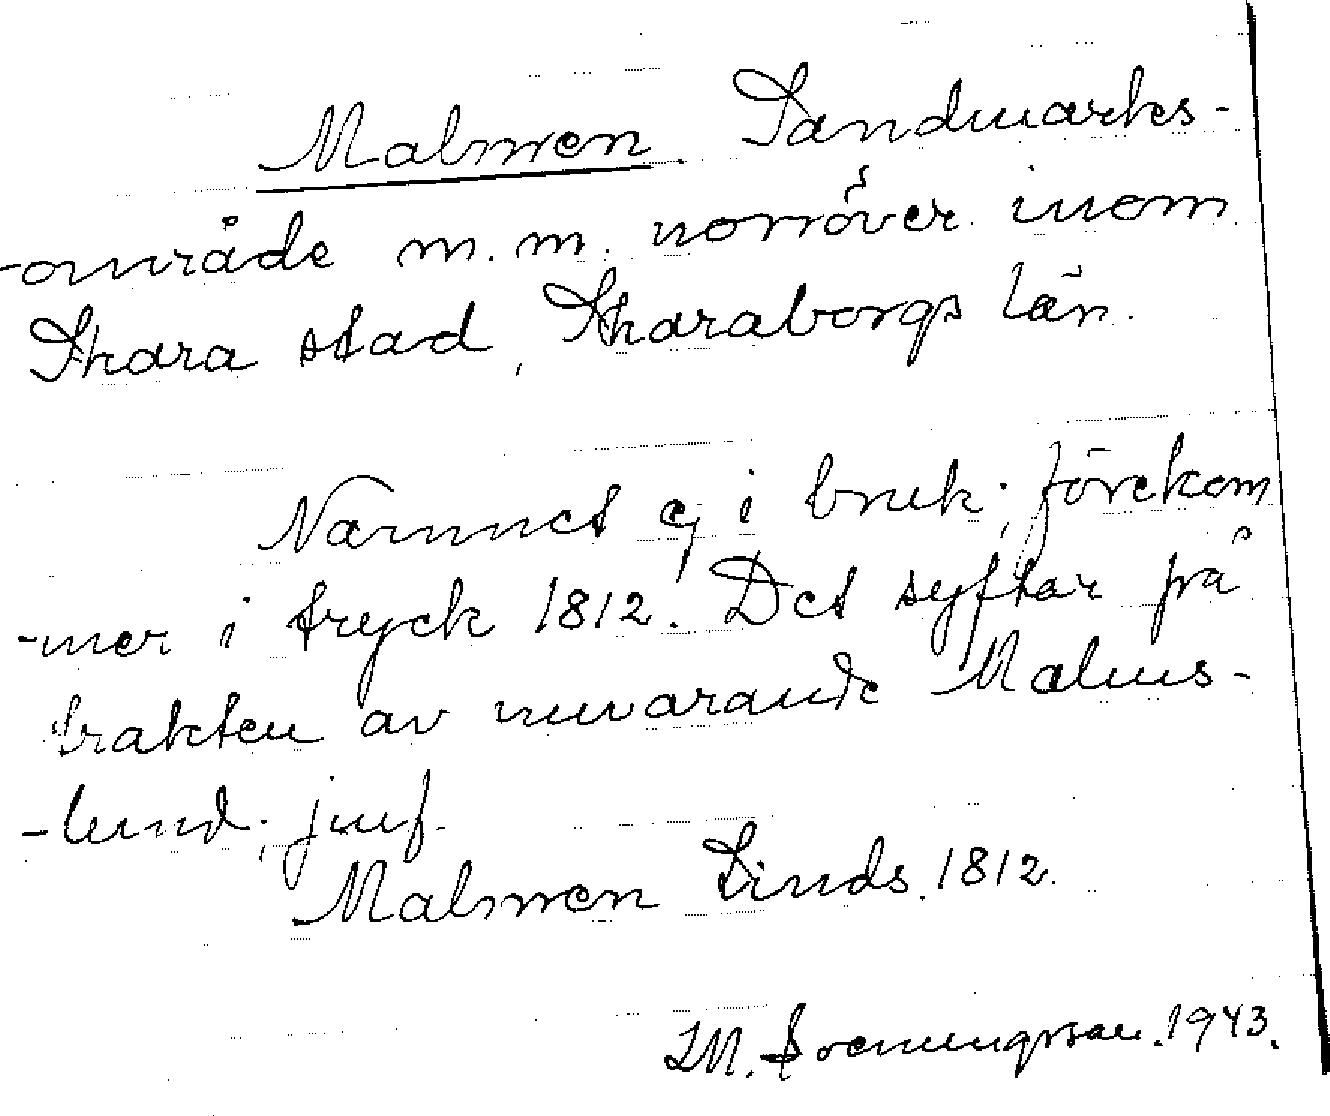 Malmen. Sandmarks-
-område m.m. norröver inom
Skara stad, Skaraborgs län.
Namnet ej i bruk; förekom
-mer i tryck 1812. Det syftar på
trakten av nuvarande Malms-
-lund; jmf.
Malmen Linds. 1812.
I.M. Svenungsson. 1943.